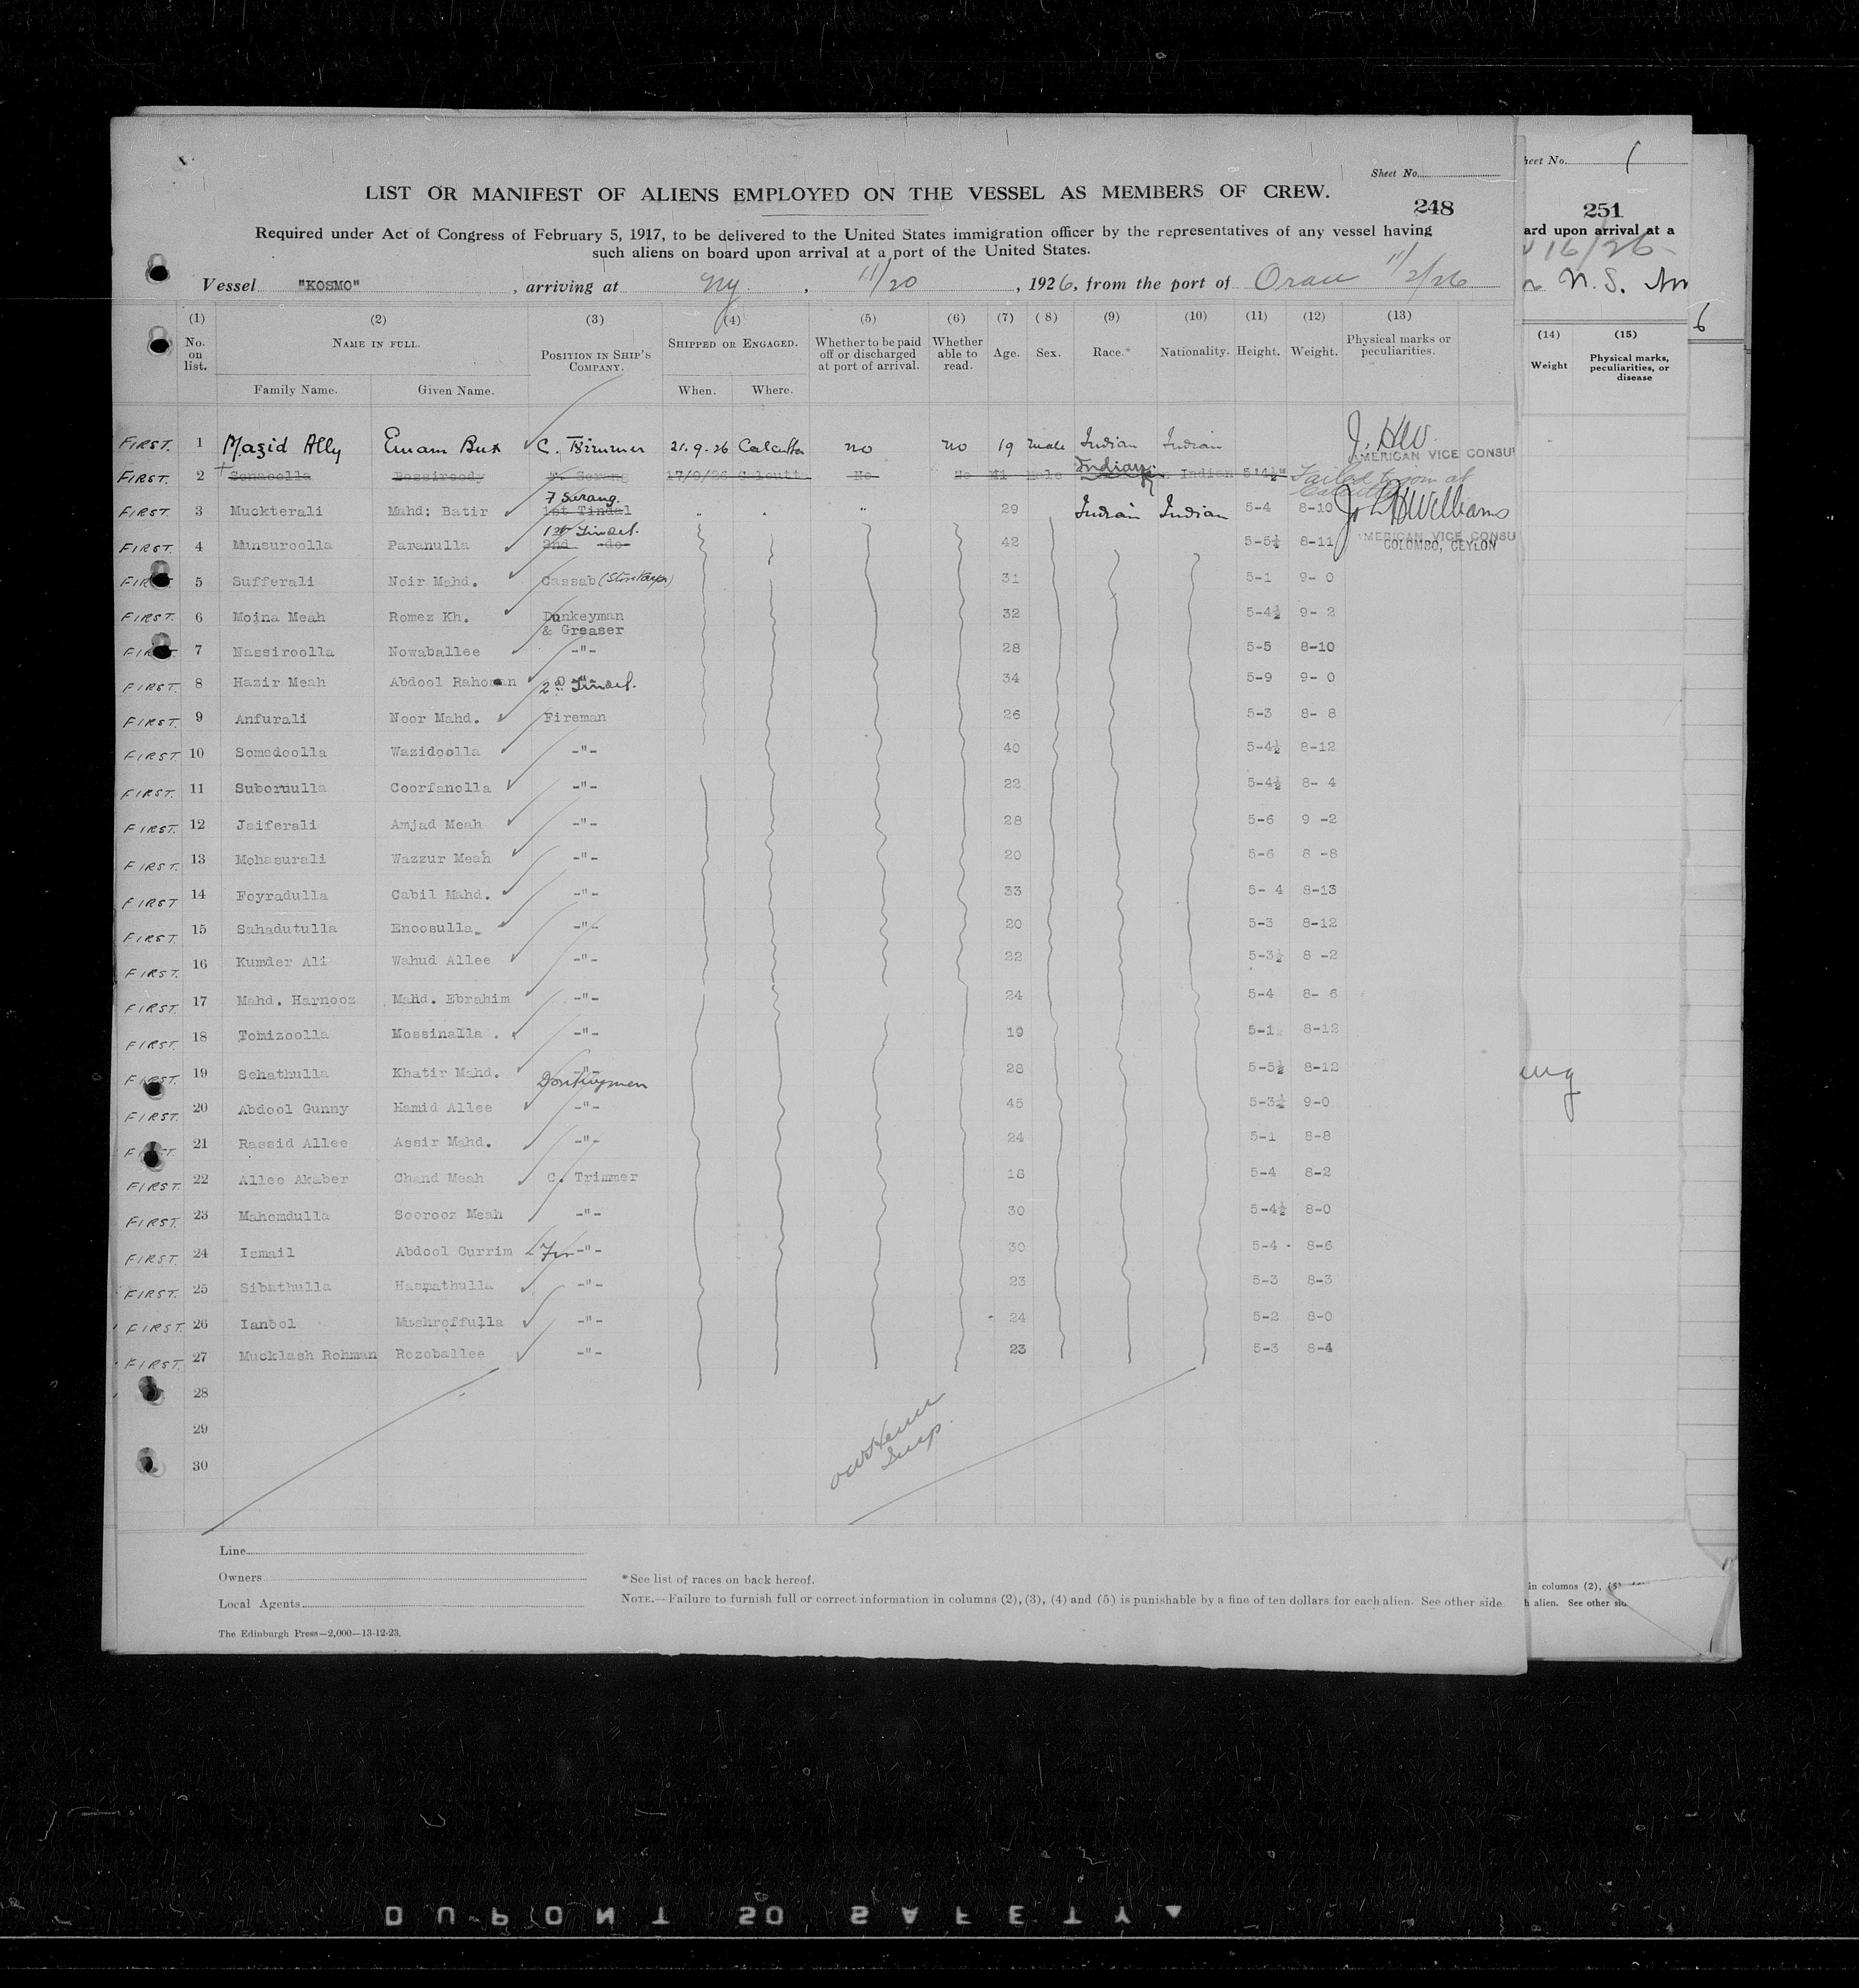 Sheet No.
LIST OR MANIFEST OF ALIENS EMPLOYED ON THE VESSEL AS MEMBERS OF CREW.
248
Required under Act of Congress of February 5, 1917, to be delivered to the United States immigration officer by the representatives of any vessel having
such aliens on board upon arrival at a port of the United States.
Vessel "KOSMO", arriving at Ny, 11/20, 1926, from the port of Oran 11/2/26
(1) (2) (3) (4) (5) (6) (7) (8) (9) (10) (11) (12) (13)
No. on list. NAME IN FULL. POSITION IN SHIP'S COMPANY. SHIPPED OR ENGAGED. Whether to be paid off or discharged at port of arrival. Whether able to read. Age. Sex. Race.* Nationality. Height. Weight. Physical marks or peculiarities.
Family Name. Given Name. When. Where.
FIRST. 1 Mazid Ally Emam Bux C. Trimmer 21.9.26 Calcutta no no 19 male Indian Indian
AMERICAN VICE CONSU
FIRST. 2 Sonaoolla Bossiroody F. Serang 17/9/26 Calcutta No No 41 Male Indian Indian 5'4½" Failed to join at Calcutta
7 Serang.
FIRST. 3 Muckterali Mahd: Batir 1st Tindal " " 29 Indian Indian 5-4 8-10 JohnHWilliams
1st Tindel.
FIRST. 4 Munsuroolla Paranulla 2nd -do- 42 5-5½ 8-11
AMERICAN VICE CONSU
COLOMBO, CEYLON
FIRST. 5 Sufferali Noir Mahd. Cassab (Storekeeper) 31 5-1 9- 0
FIRST. 6 Moina Meah Romez Kh. Donkeyman & Greaser 32 5-4½ 9- 2
FIRST. 7 Nassiroolla Nowaballee -"- 28 5-5 8-10
FIRST. 8 Hazir Meah Abdool Rahoman 2nd Tindel. 34 5-9 9- 0
FIRST. 9 Anfurali Noor Mahd. Fireman 26 5-3 8- 8
FIRST. 10 Somedoolla Wazidoolla -"- 40 5-4½ 8-12
FIRST. 11 Suboruulla Coorfanolla -"- 22 5-4½ 8- 4
FIRST. 12 Jaiferali Amjad Meah -"- 28 5-6 9 -2
FIRST. 13 Mohasurali Wazzur Meah -"- 20 5-6 8 -8
FIRST 14 Foyradulla Cabil Mahd. -"- 33 5- 4 8-13
FIRST. 15 Sahadutulla Enoosulla. -"- 20 5-3 8-12
FIRST. 16 Kumder Ali Wahud Allee -"- 22 5-3½ 8 -2
FIRST. 17 Mahd. Harnooz Mahd. Ebrahim -"- 24 5-4 8- 6
FIRST. 18 Tomizoolla Mossinalla . -"- 19 5-1 8-12
FIRST. 19 Sehathulla Khatir Mahd. -"- 28 5-5½ 8-12
Donkeymen
FIRST. 20 Abdool Gunny Hamid Allee -"- 45 5-3½ 9-0
FIRST. 21 Rassid Allee Assir Mahd. -"- 24 5-1 8-8
FIRST. 22 Allee Akaber Chand Meah C. Trimmer 18 5-4 8-2
FIRST. 23 Mahomdulla Soorooz Meah -"- 30 5-4½ 8-0
FIRST. 24 Ismail Abdool Currim -"- 30 5-4 8-6
FIRST. 25 Sibathulla Hasmathulla -"- 23 5-3 8-3
FIRST. 26 Ianbol Mushroffulla -"- 24 5-2 8-0
FIRST. 27 Mucklash Rohman Rozoballee -"- 23 5-3 8-4
28
29
30
Line
Owners
Local Agents
*See list of races on back hereof.
NOTE.—Failure to furnish full or correct information in columns (2), (3), (4) and (5) is punishable by a fine of ten dollars for each alien. See other side
The Edinburgh Press—2,000—13-12-23.
heet No. 1
251
ard upon arrival at a
16/26
N.S.
6
(14) (15)
Weight Physical marks, peculiarities, or disease
in columns (2), (5)
h alien. See other
DUPONT SO SAFETY